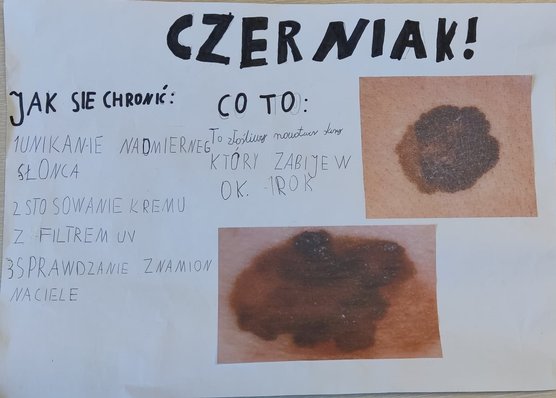 CZERNIAK!
JAK SIE CHRONIĆ:
1UNIKANIE NADMIERNEG
SŁONCA
2STOSOWANIE KREMU
Z FILTREM UV
3SPRAWDZANIE ZNAMION
NACIELE
CO TO:
To złośliwy nowotwór skóry
KTÓRY ZABIJE W
OK. 1ROK